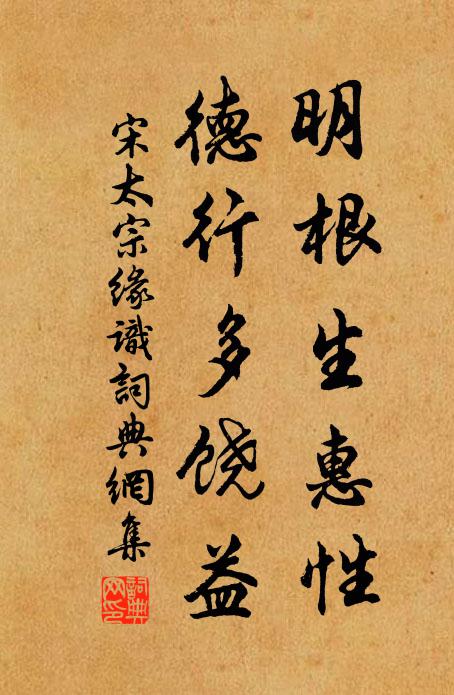 明根生惠性
德行多饶益
宋太宗缘識詞典網集
詞典網印